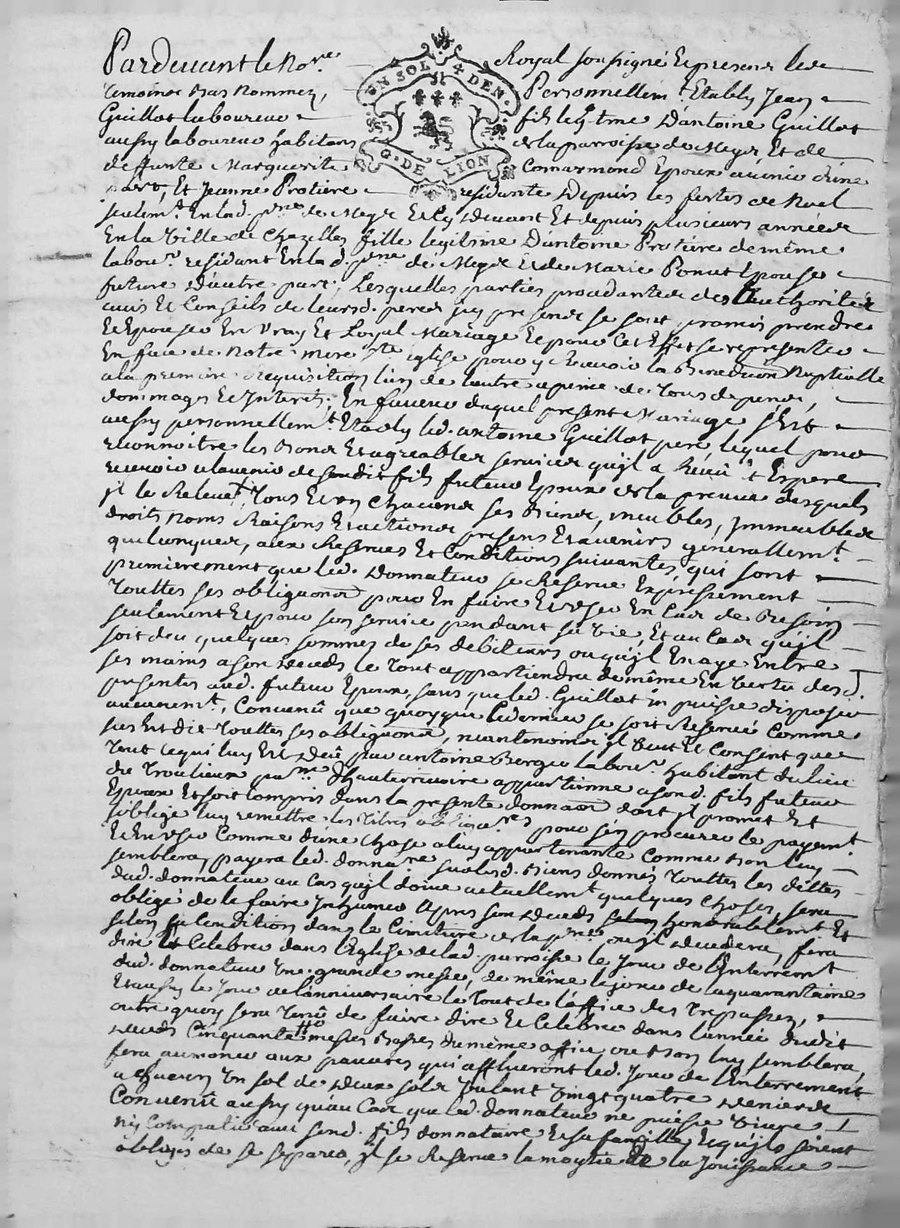 Pardevant le No.re Royal soussigné Et presens les
temoins Bas Nommez, Personnellem.t Etably Jean
Guillot laboureur fils leg.tme D'antoine Guillot
aussy laboureur habitans de la parroisse de Meys Et de
deffunte Marguerite Comarmond Epoux avenir d'une
part, Et Jeanne Protiere residante Depuis les festes de Noel
seulem.t En lad. p.sse de Meys Et Cy devant Et depuis plusieurs années
UN SOL 4 DEN.
G. DE LION
En la Ville de Chazelles fille legitime D'antoine Protiere de même
labou.r residant En lad. p.sse de Meys Et de Marie Ponut Epouse
future d'autre part; Lesquelles parties procedantes des Authorités
avis Et Conseils de leursd. peres icy presens se sont promis prendre
Et Epouser En Vray Et Loyal Mariage Et pour Cet Effet se representer
En face de Notre mere s.te Eglise pour y Recevoir la Benediction Nuptialle
a la premiere Requisition l'un de l'autre a peine de Tous depens,
dommages Et Interets; En faveur duquel present Mariage S'Est
aussy personnellem.t Etably led. antoine Guillot pere lequel pour
reconnoitre les Bons Et agreables services qu'jl a Recu Et Espere
recevoir a l'avenir de sondit fils futeur Epoux de la preuve desquels
jl le Releve Tous Et un Chacuns ses Biens, meubles, Immeubles
droits Noms Raisons Et actions presens Et avenirs generallem.t
quelconques, aux Reserves Et Conditions suivantes, qui sont
premierement que led. Donnateur se Reserve Expressement
Touttes ses obliguons pour En faire Et User En Cas de Besoin
seulement Et pour son service pendant sa Vie, Et au Cas qu'jl
soit deu quelques sommes de ses debiteurs ou qu'jl En aye Entre
ses mains a son deces le Tout appartiendra de même En vertu des d.
presentes aud. futeur Epoux, sans que led. Guillot En puisse disposer
autrem.t, Convenû que quoyque led. dernier se soit Reservé Comme
sus Est dit Touttes ses obliguons, neantmoins jl Veut Et Consent que
Tout Ce qui luy Est dû par antoine Bergier labou.r habitant du lieu
de p.sse D'hauterrivoire appartienne a sond. fils futeur
Epoux Et soit Compris dans la presente donnaon dont jl promet Et
s'oblige luy remettre les titres pour s'en procurer le payem.t
Et En User Comme d'une Chose a luy appartenante Comme Bon luy
semblera, payera led. donna.re sur lesd. Biens donnés Touttes les dettes
dud. donnateur au Cas qu'jl doive actuellem.t quelques Choses, sera
obligé de le faire Inhumer Apres son deces honorablem.t Et
selon sa Condition dans le Cimitiere de la p.sse ou jl decedera, fera
dire Et Celebrer dans l'Eglise de lad. parroisse le Jour de l'Enterrem.t
dud. donnateur Une grande messe, de même le Jour de la quarantaine
Et aussy le Jour de l'anniversaire le Tout de l'office des Trepassez,
outre quoy sera Tenû de faire dire Et Celebrer dans l'année dudit
deces Cinquante messes Basses du même office ou Bon luy semblera,
fera aumone aux pauvres qui afflueront led. Jour de l'Enterrement
a Chacun Un sol de deux sols Valant Vingt quatre deniers
Convenû aussy qu'au Cas que led. donnateur ne puisse Vivre
Ny Compatir avec sond. fils donnataire Et sa famille Et qu'jls soient
obligés de se separer, jl se Reserve la moytié de la Jouissance